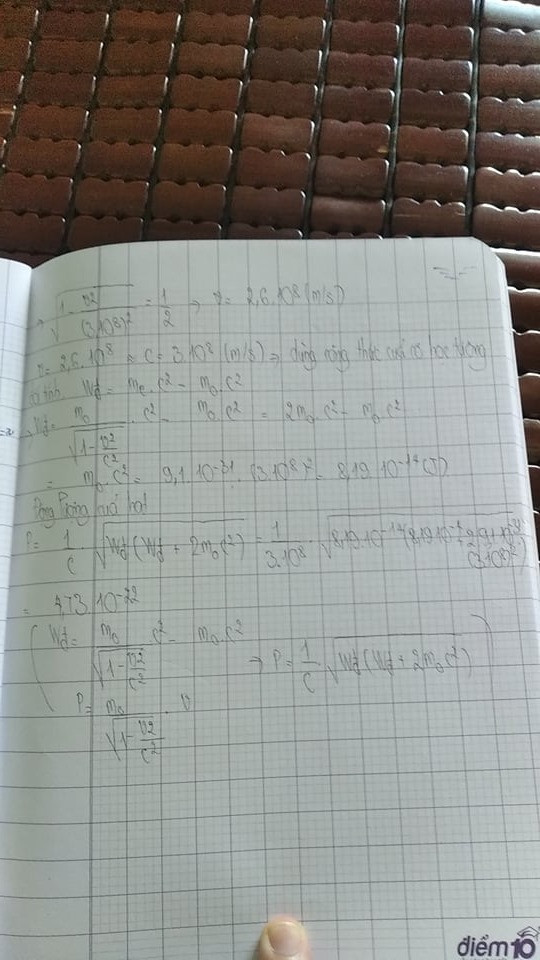 → √(1 - v²/(3.10⁸)²) = 1/2 → v = 2,6.10⁸ (m/s)
v = 2,6.10⁸ ≈ c = 3.10⁸ (m/s) → dùng công thức của cơ học tương
đối tính. Wđ = me.c² - m₀.c²
→ Wđ = m₀/√(1 - v²/c²) . c² - m₀c² = 2m₀c² - m₀c²
= m₀.c² = 9,1.10⁻³¹.(3.10⁸)² = 8,19.10⁻¹⁴ (J)
động lượng của hạt
P = 1/c √(Wđ(Wđ + 2m₀c²)) = 1/3.10⁸ . √(8,19.10⁻¹⁴(8,19.10⁻¹⁴ + 2.9,1.10⁻³¹.(3.10⁸)²))
= 4,73.10⁻²²
( Wđ = m₀/√(1 - v²/c²) c² - m₀.c²
→ P = 1/c √(Wđ(Wđ + 2m₀c²)) )
P = m₀/√(1 - v²/c²) . v
điểm 10